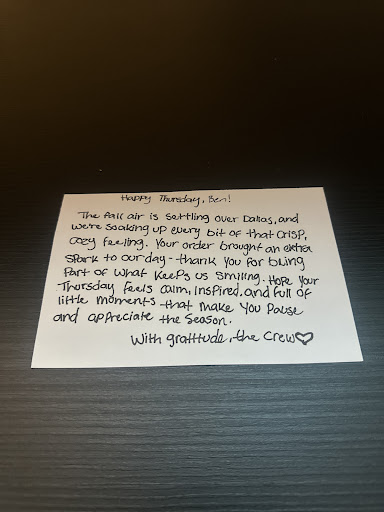 Happy Thursday, Ben!
The fall air is settling over Dallas, and
we're soaking up every bit of that crisp,
cozy feeling. Your order brought an extra
spark to our day--thank you for being
part of what keeps us smiling. Hope your
Thursday feels calm, inspired, and full of
little moments that make you pause
and appreciate the season.
With gratitude, the Crew♡